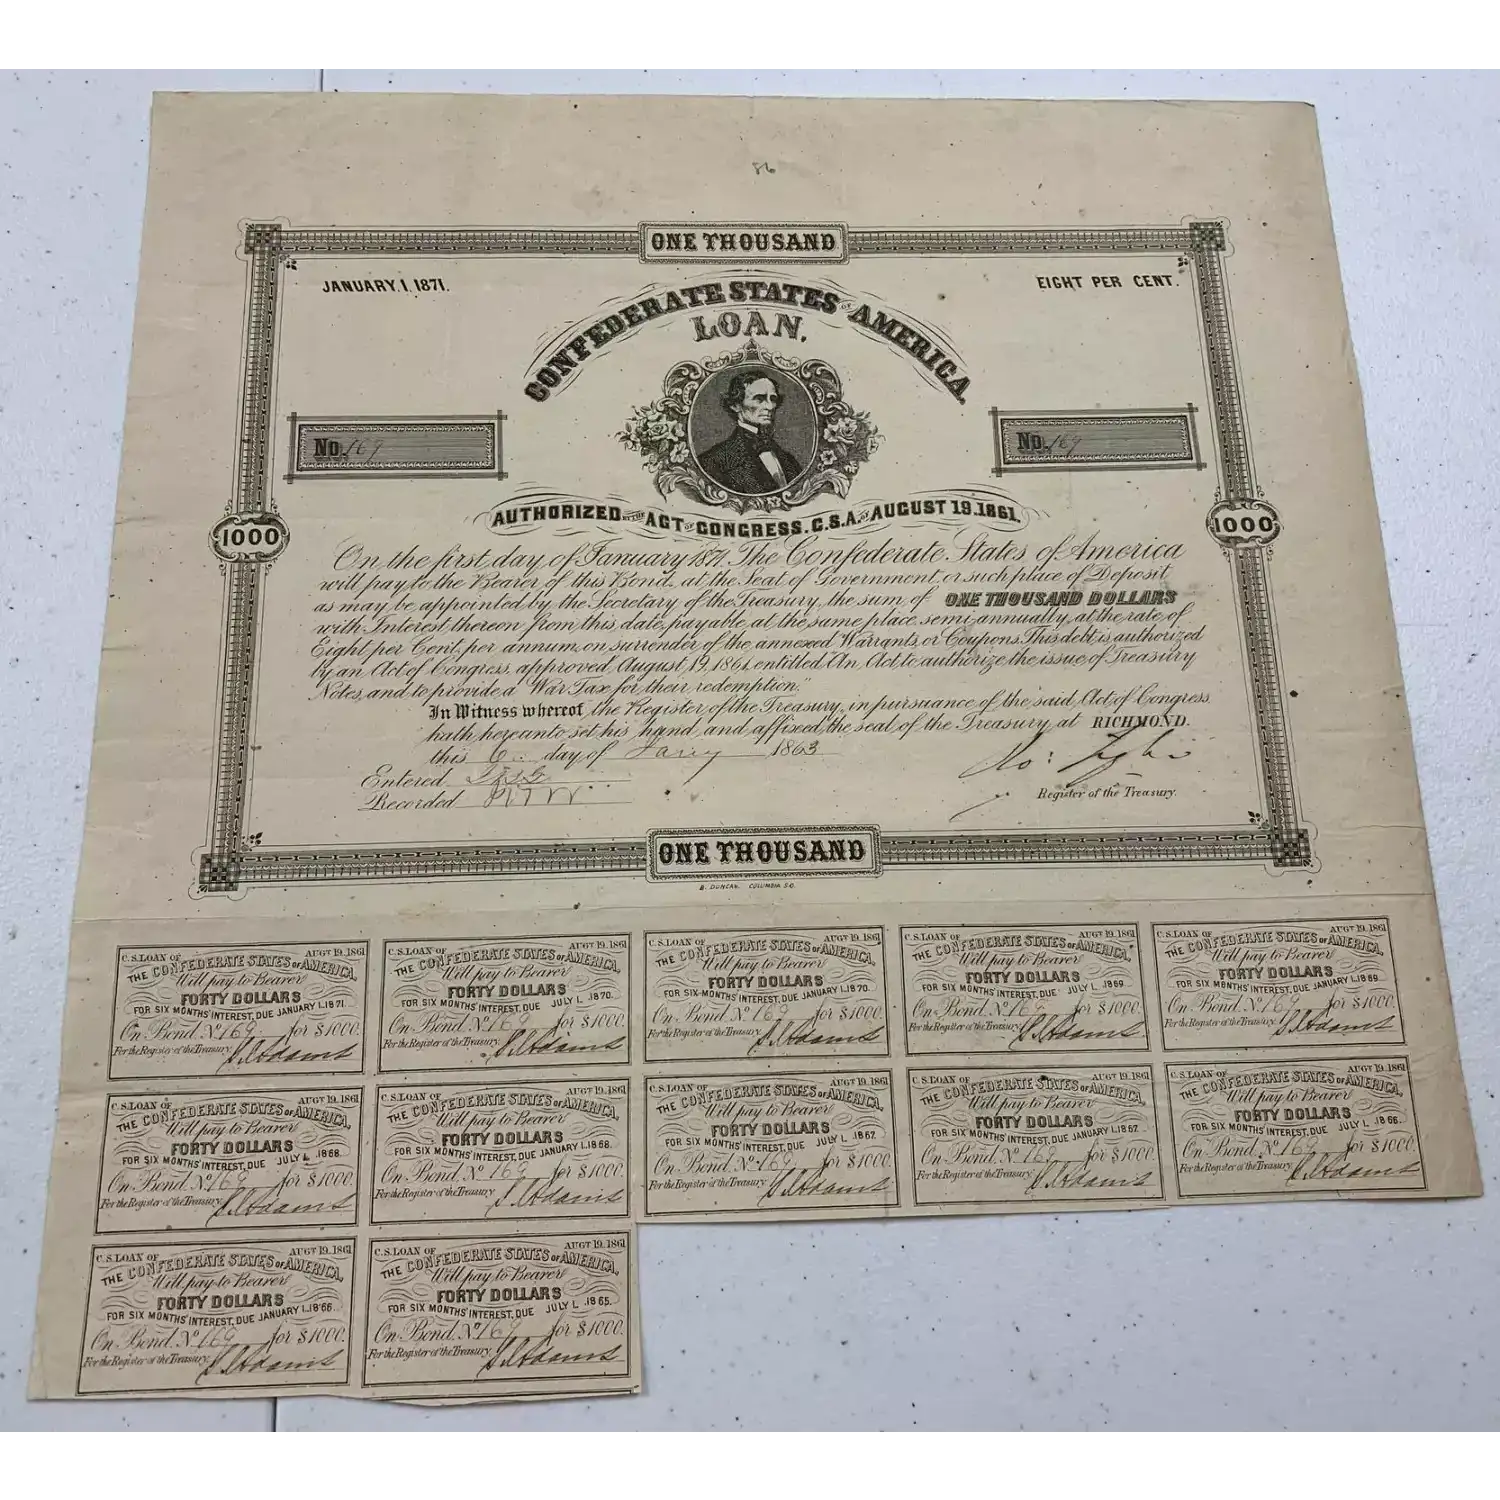 86
ONE THOUSAND
JANUARY, 1, 1871.
EIGHT PER CENT.
CONFEDERATE STATES OF AMERICA,
LOAN,
No. 169
No. 169
AUTHORIZED BY THE ACT OF CONGRESS, C.S.A. OF AUGUST 19, 1861.
1000
1000
On the first day of January 1871, The Confederate States of America
will pay to the Bearer of this Bond, at the Seat of Government, or such place of Deposit
as may be appointed by the Secretary of the Treasury, the sum of ONE THOUSAND DOLLARS
with Interest thereon from this date, payable at the same place semi-annually, at the rate of
Eight per Cent, per annum, on surrender of the annexed Warrants, or Coupons. This debt is authorized
by an Act of Congress, approved August, 19, 1861, entitled "An Act to authorize the issue of Treasury
Notes, and to provide a War Tax for their redemption."
In Witness whereof, the Register of the Treasury, in pursuance of the said Act of Congress
hath hereunto set his hand and affixed the seal of the Treasury, at RICHMOND.
this 6 day of Jany 1863
Entered
Recorded
Ro: Tyler
Register of the Treasury.
ONE THOUSAND
B. DUNCAN, COLUMBIA S.C.
C.S. LOAN OF AUGT 19, 1861
THE CONFEDERATE STATES OF AMERICA,
Will pay to Bearer
FORTY DOLLARS
FOR SIX MONTHS' INTEREST, DUE JANUARY 1, 1871.
On Bond, No 169 for $1000.
For the Register of the Treasury.
C.S. LOAN OF AUGT 19, 1861
THE CONFEDERATE STATES OF AMERICA,
Will pay to Bearer
FORTY DOLLARS
FOR SIX MONTHS' INTEREST, DUE JULY 1, 1870.
On Bond, No 169 for $1000.
For the Register of the Treasury.
C.S. LOAN OF AUGT 19, 1861
THE CONFEDERATE STATES OF AMERICA,
Will pay to Bearer
FORTY DOLLARS
FOR SIX MONTHS' INTEREST, DUE JANUARY 1, 1870.
On Bond, No 169 for $1000.
For the Register of the Treasury.
C.S. LOAN OF AUGT 19, 1861
THE CONFEDERATE STATES OF AMERICA,
Will pay to Bearer
FORTY DOLLARS
FOR SIX MONTHS' INTEREST, DUE JULY 1, 1869.
On Bond, No 169 for $1000.
For the Register of the Treasury.
C.S. LOAN OF AUGT 19, 1861
THE CONFEDERATE STATES OF AMERICA,
Will pay to Bearer
FORTY DOLLARS
FOR SIX MONTHS' INTEREST, DUE JANUARY 1, 1869.
On Bond, No 169 for $1000.
For the Register of the Treasury.
C.S. LOAN OF AUGT 19, 1861
THE CONFEDERATE STATES OF AMERICA,
Will pay to Bearer
FORTY DOLLARS
FOR SIX MONTHS' INTEREST, DUE JULY 1, 1868.
On Bond, No 169 for $1000.
For the Register of the Treasury.
C.S. LOAN OF AUGT 19, 1861
THE CONFEDERATE STATES OF AMERICA,
Will pay to Bearer
FORTY DOLLARS
FOR SIX MONTHS' INTEREST, DUE JANUARY 1, 1868.
On Bond, No 169 for $1000.
For the Register of the Treasury.
C.S. LOAN OF AUGT 19, 1861
THE CONFEDERATE STATES OF AMERICA,
Will pay to Bearer
FORTY DOLLARS
FOR SIX MONTHS' INTEREST, DUE JULY 1, 1867.
On Bond, No 169 for $1000.
For the Register of the Treasury.
C.S. LOAN OF AUGT 19, 1861
THE CONFEDERATE STATES OF AMERICA,
Will pay to Bearer
FORTY DOLLARS
FOR SIX MONTHS' INTEREST, DUE JANUARY 1, 1867.
On Bond, No 169 for $1000.
For the Register of the Treasury.
C.S. LOAN OF AUGT 19, 1861
THE CONFEDERATE STATES OF AMERICA,
Will pay to Bearer
FORTY DOLLARS
FOR SIX MONTHS' INTEREST, DUE JULY 1, 1866.
On Bond, No 169 for $1000.
For the Register of the Treasury.
C.S. LOAN OF AUGT 19, 1861
THE CONFEDERATE STATES OF AMERICA,
Will pay to Bearer
FORTY DOLLARS
FOR SIX MONTHS' INTEREST, DUE JANUARY 1, 1866.
On Bond, No 169 for $1000.
For the Register of the Treasury.
C.S. LOAN OF AUGT 19, 1861
THE CONFEDERATE STATES OF AMERICA,
Will pay to Bearer
FORTY DOLLARS
FOR SIX MONTHS' INTEREST, DUE JULY 1, 1865.
On Bond, No 169 for $1000.
For the Register of the Treasury.